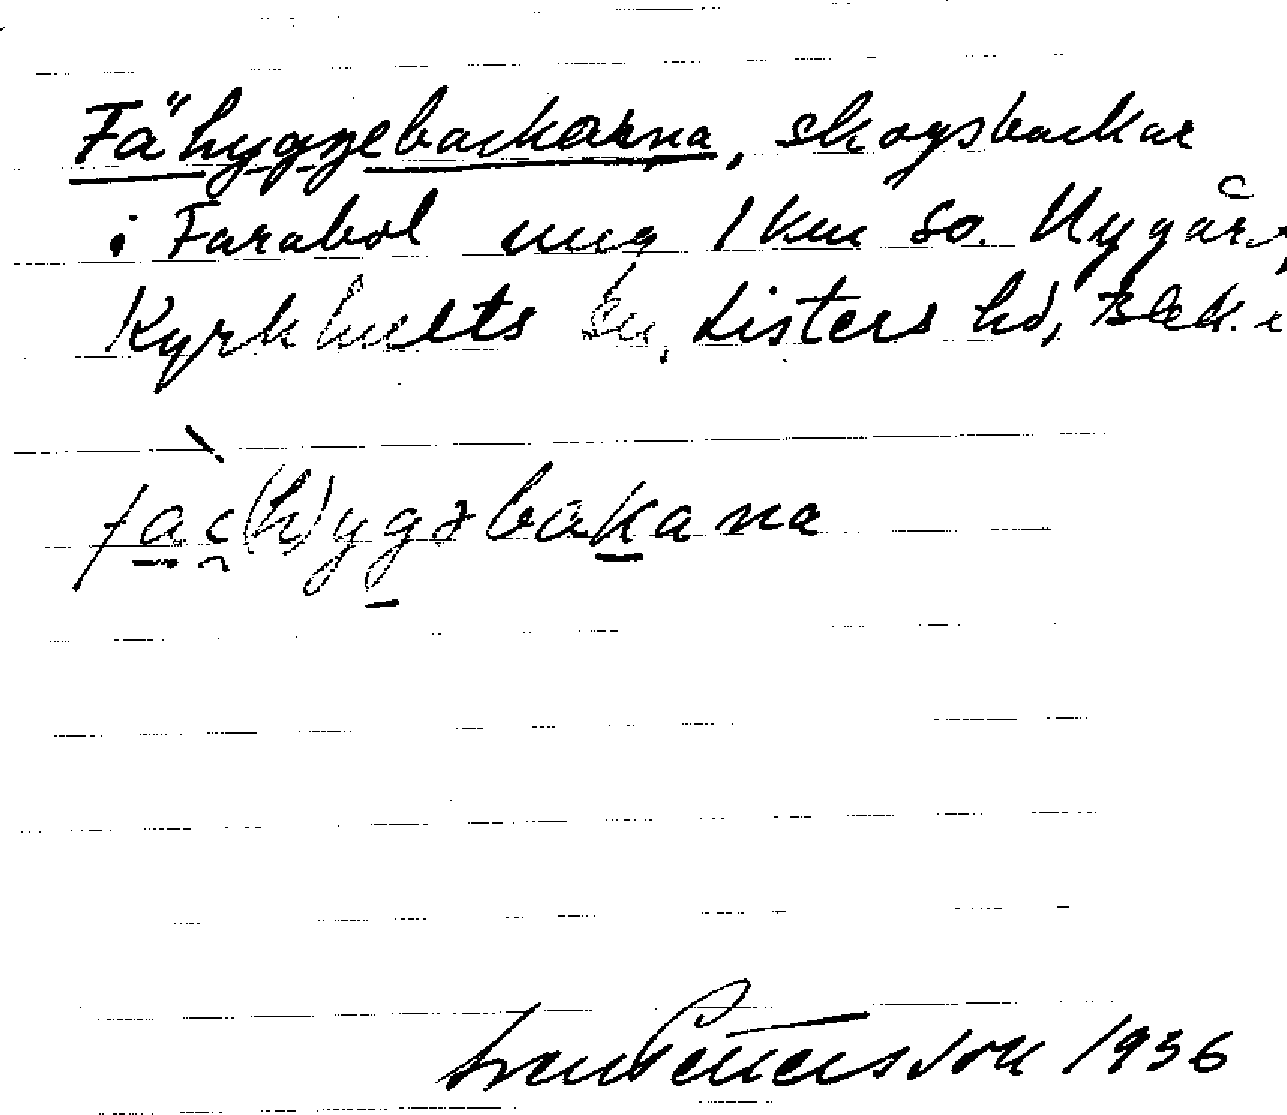 Fähyggebackarna, skogsbackar
i Farabol ung 1 km so. Nygård,
Kyrkhults sn, Listers hd, Blek.
fac(h)ygəbakana
Pettersson 1936